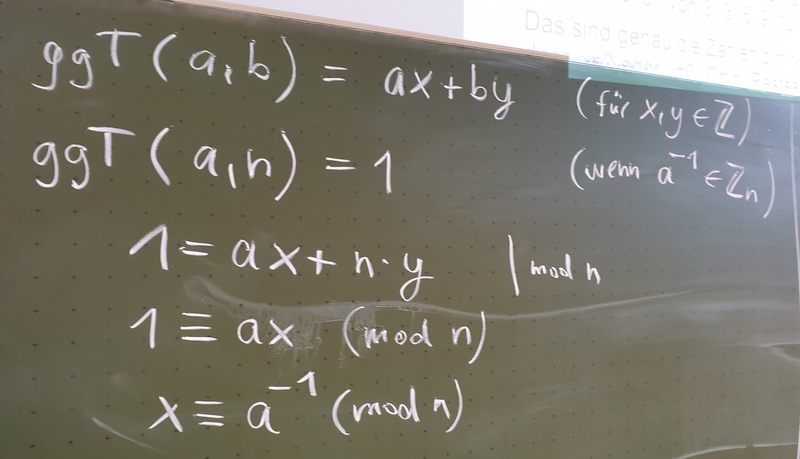 Das sind genau die
ggT(a,b) = ax+by (für x,y ∈ ℤ)
ggT(a,n) = 1 (wenn a⁻¹ ∈ ℤₙ)
1 = ax + n·y | mod n
1 ≡ ax (mod n)
x ≡ a⁻¹ (mod n)